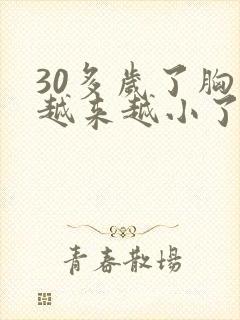 30多歲了胸
越来越小了
青春散場